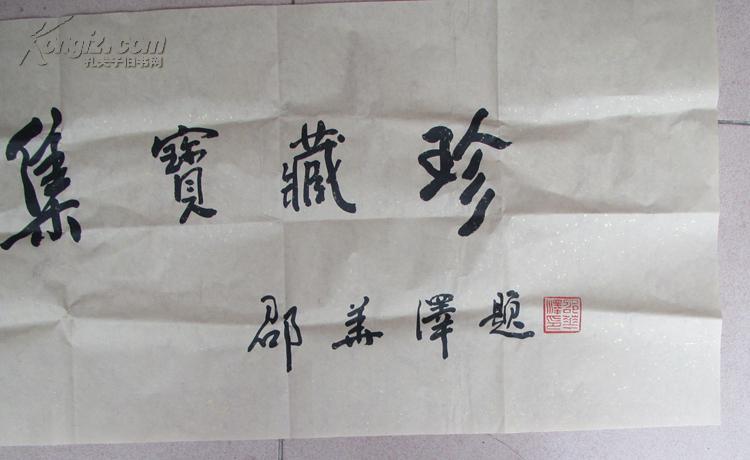 Kongfz.com
孔夫子旧书网
集寶藏珍
邵華澤題
邵華澤印